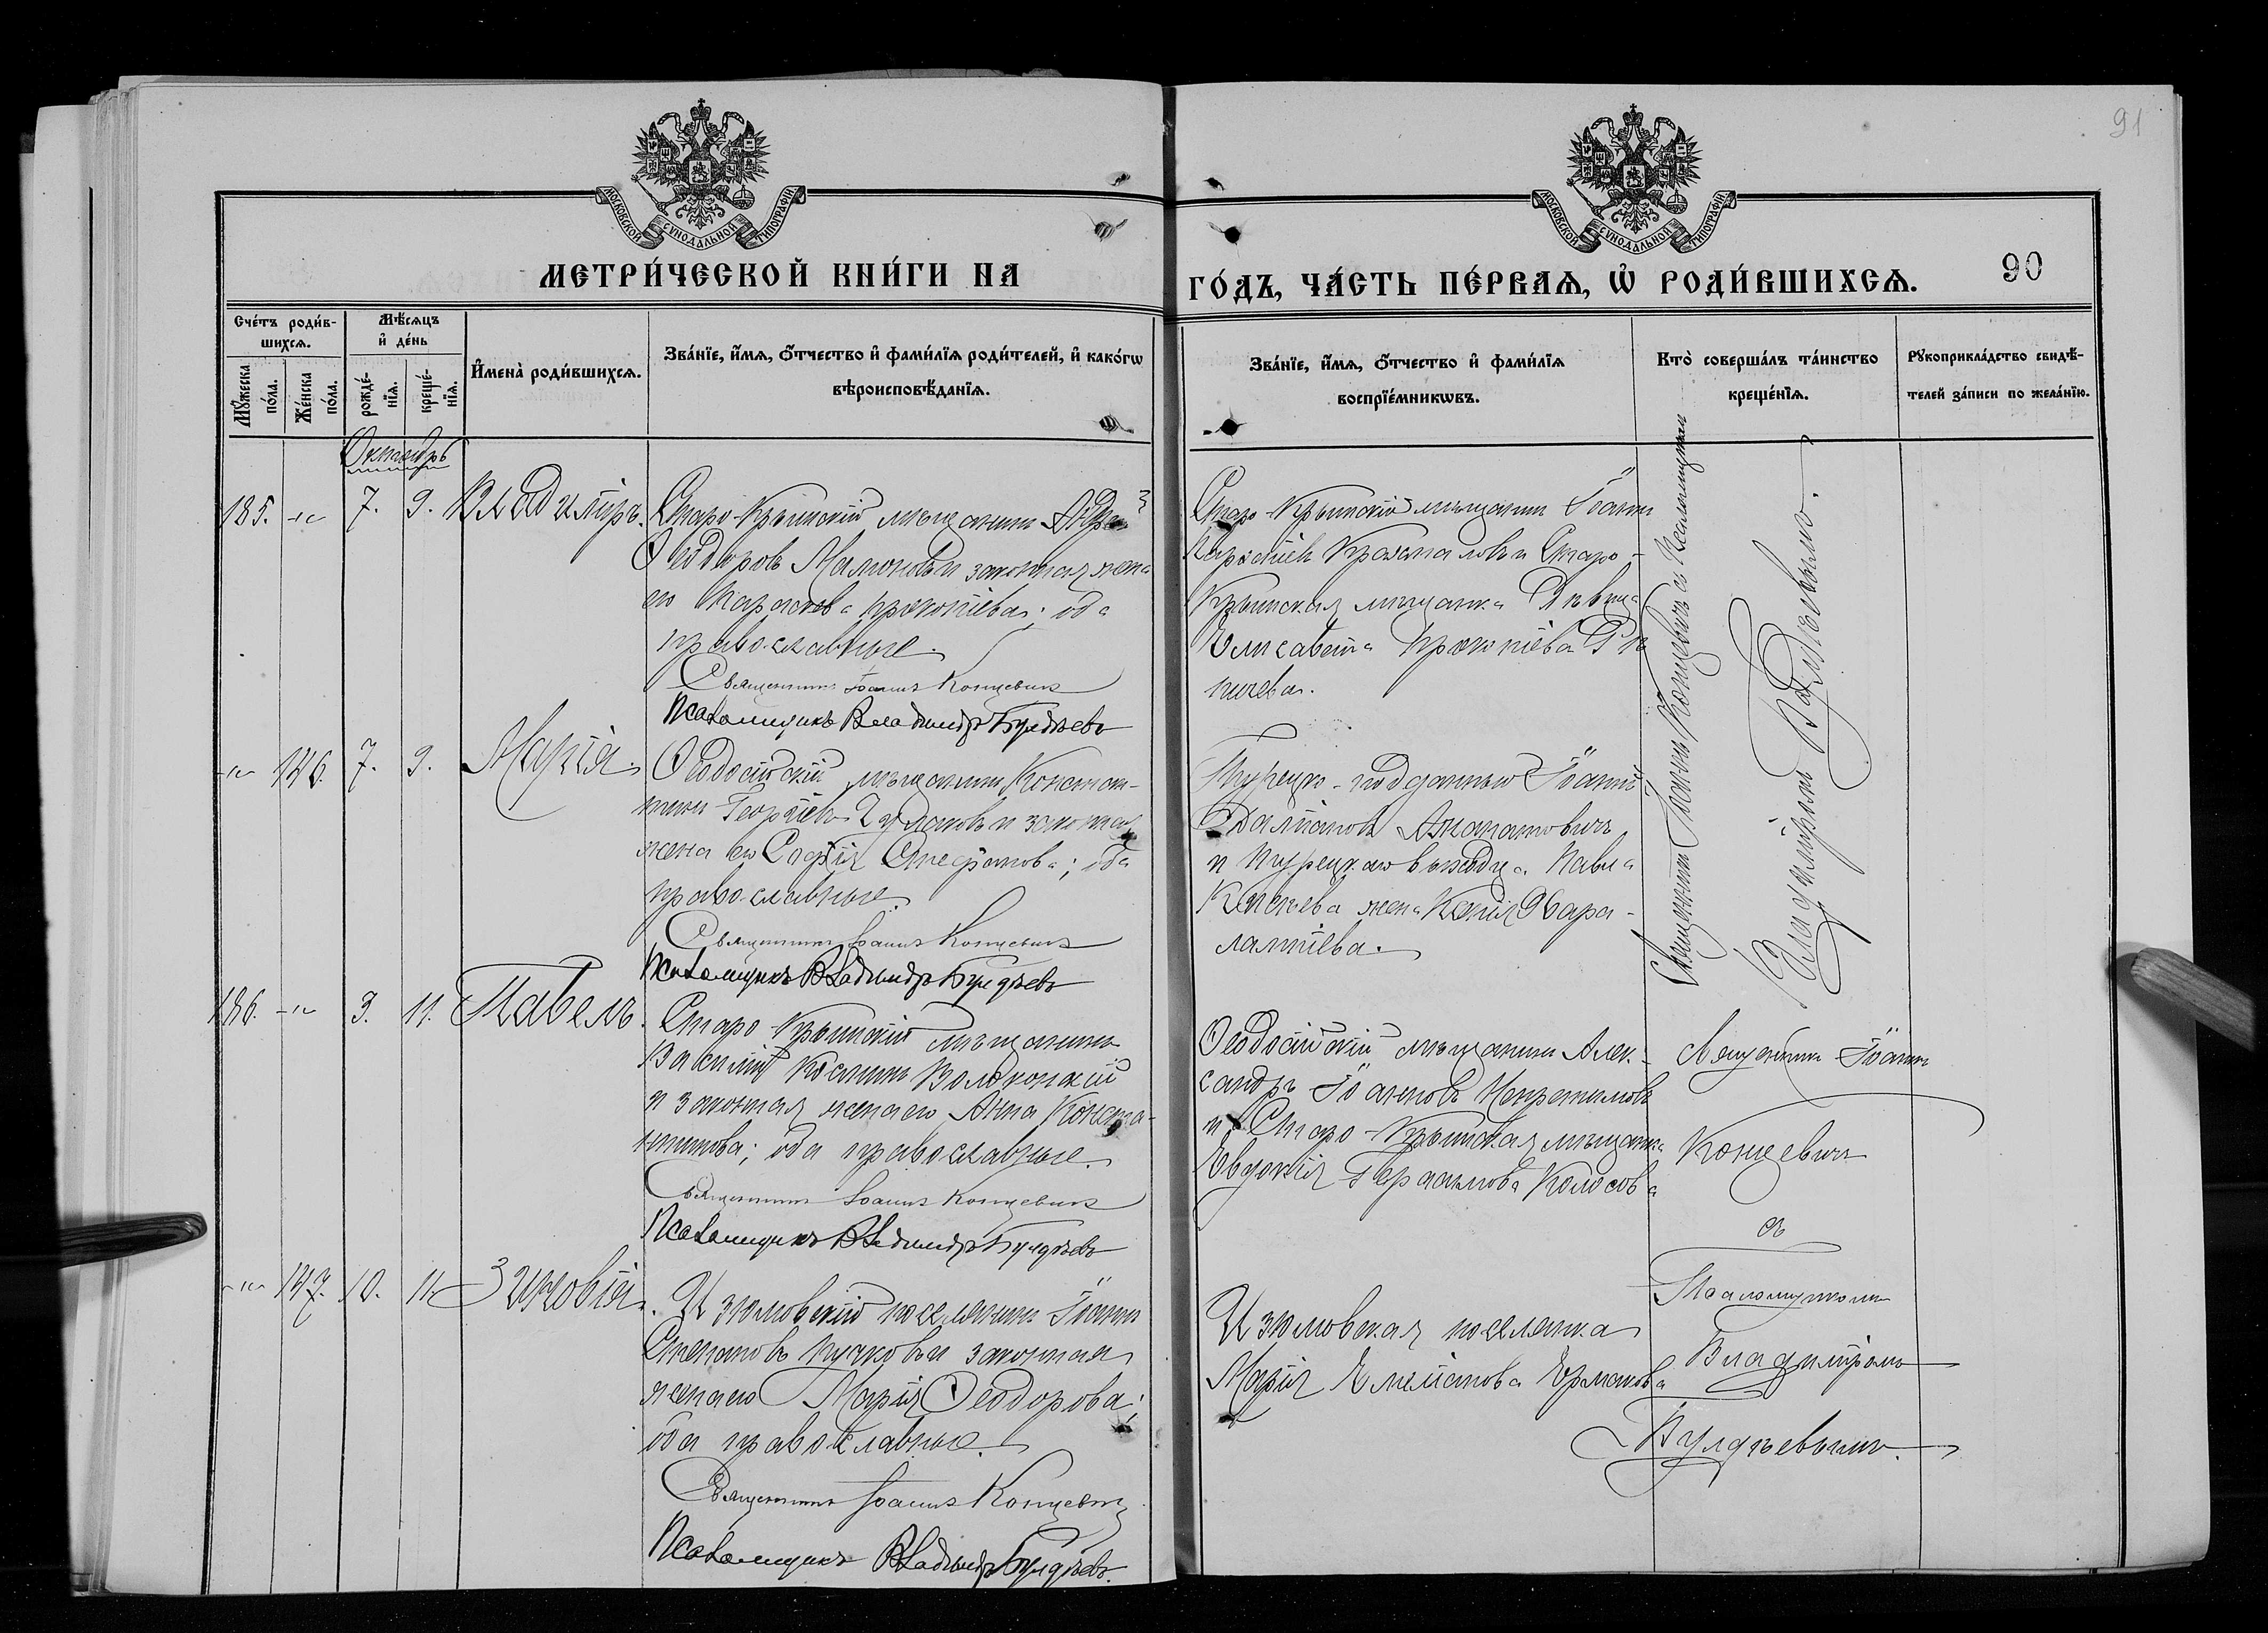 91
МОСКОВСКОЙ СУНОДАЛЬНОЙ ТИПОГРАФІИ
МОСКОВСКОЙ СУНОДАЛЬНОЙ ТИПОГРАФІИ
МЕТРИ́ЧЕСКОЙ КНИ́ГИ НА
ГО́ДЪ, ЧА́СТЬ ПЕ́РВАѦ, Ѡ҆ РОДИ́ВШИХСѦ.
90
Сче́тъ роди́в-
шихсѧ.
Мꙋ́жеска по́ла.
Же́нска по́ла.
Мѣ́сѧцъ
и҆ де́нь
рожде́-
нїѧ.
креще́-
нїѧ.
И҆мена̀ роди́вшихсѧ.
Зва́нїе, и҆́мѧ, ѻ҆́тчество и҆ фами́лїѧ роди́телей, и҆ како́гѡ
вѣроисповѣ́данїѧ.
Зва́нїе, и҆́мѧ, ѻ҆́тчество и҆ фами́лїѧ
воспрїе́мникѡвъ.
Кто̀ соверша́лъ та́инство
креще́нїѧ.
Рꙋкоприкла́дство свидѣ́-
телей за́писи по жела́нїю.
Октябрь
185. -"- 7. 9. Владиміръ.
Старо-Крымскій мѣщанинъ
Ѳеодоровъ Мамоновъ и законная жена
его Параскева Прокопіева; оба
православные.
Священникъ Іоаннъ Концевичъ
Псаломщикъ Владиміръ Булдѣевъ
Старо-Крымскій мѣщанинъ Іоаннъ
и Старо-
Крымская мѣщанка Дѣвица
Елисавета Прокопіева
Священникъ Іоаннъ Концевичъ съ Псаломщикомъ
Владиміромъ Булдѣевымъ.
-"- 146. 7. 9. Марія.
Ѳеодосійскій мѣщанинъ Констан-
тинъ Георгіевъ и законная
жена его Софія Стефанова; оба
православные.
Священникъ Іоаннъ Концевичъ
Псаломщикъ Владиміръ Булдѣевъ
Турецко-подданный Іоаннъ
и Турецкаго выходца Павла
жена Хара-
лампіева.
186. -"- 9. 11. Павелъ.
Старо-Крымскій мѣщанинъ
Василій Косминъ Волоконскій
и законная жена его Анна Конста-
нтинова; оба православные.
Священникъ Іоаннъ Концевичъ
Псаломщикъ Владиміръ Булдѣевъ
Ѳеодосійскій мѣщанинъ Алек-
сандръ Іоанновъ
и Старо-Крымская мѣщанка
Евдокія Герасимова Колосова
Священникъ Іоаннъ
Концевичъ
съ
Псаломщикомъ
Владиміромъ
Булдѣевымъ.
-"- 147. 10. 11. Зиновія.
Изюмовскій поселянинъ Іоаннъ
Степановъ Пучковъ и законная
жена его Марія Ѳеодорова;
оба православные.
Священникъ Іоаннъ Концевичъ
Псаломщикъ Владиміръ Булдѣевъ.
Изюмовская поселянка
Марія Емеліанова Ермакова